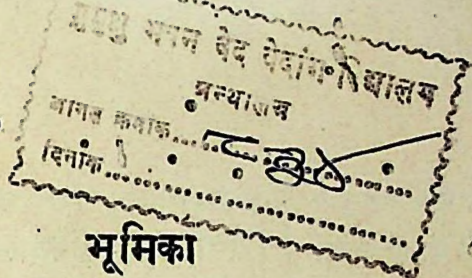 मुमुक्षु भवन वेद वेदांग विद्यालय
ग्रन्थालय
आगत क्रमांक....
दिनांक....
भूमिका